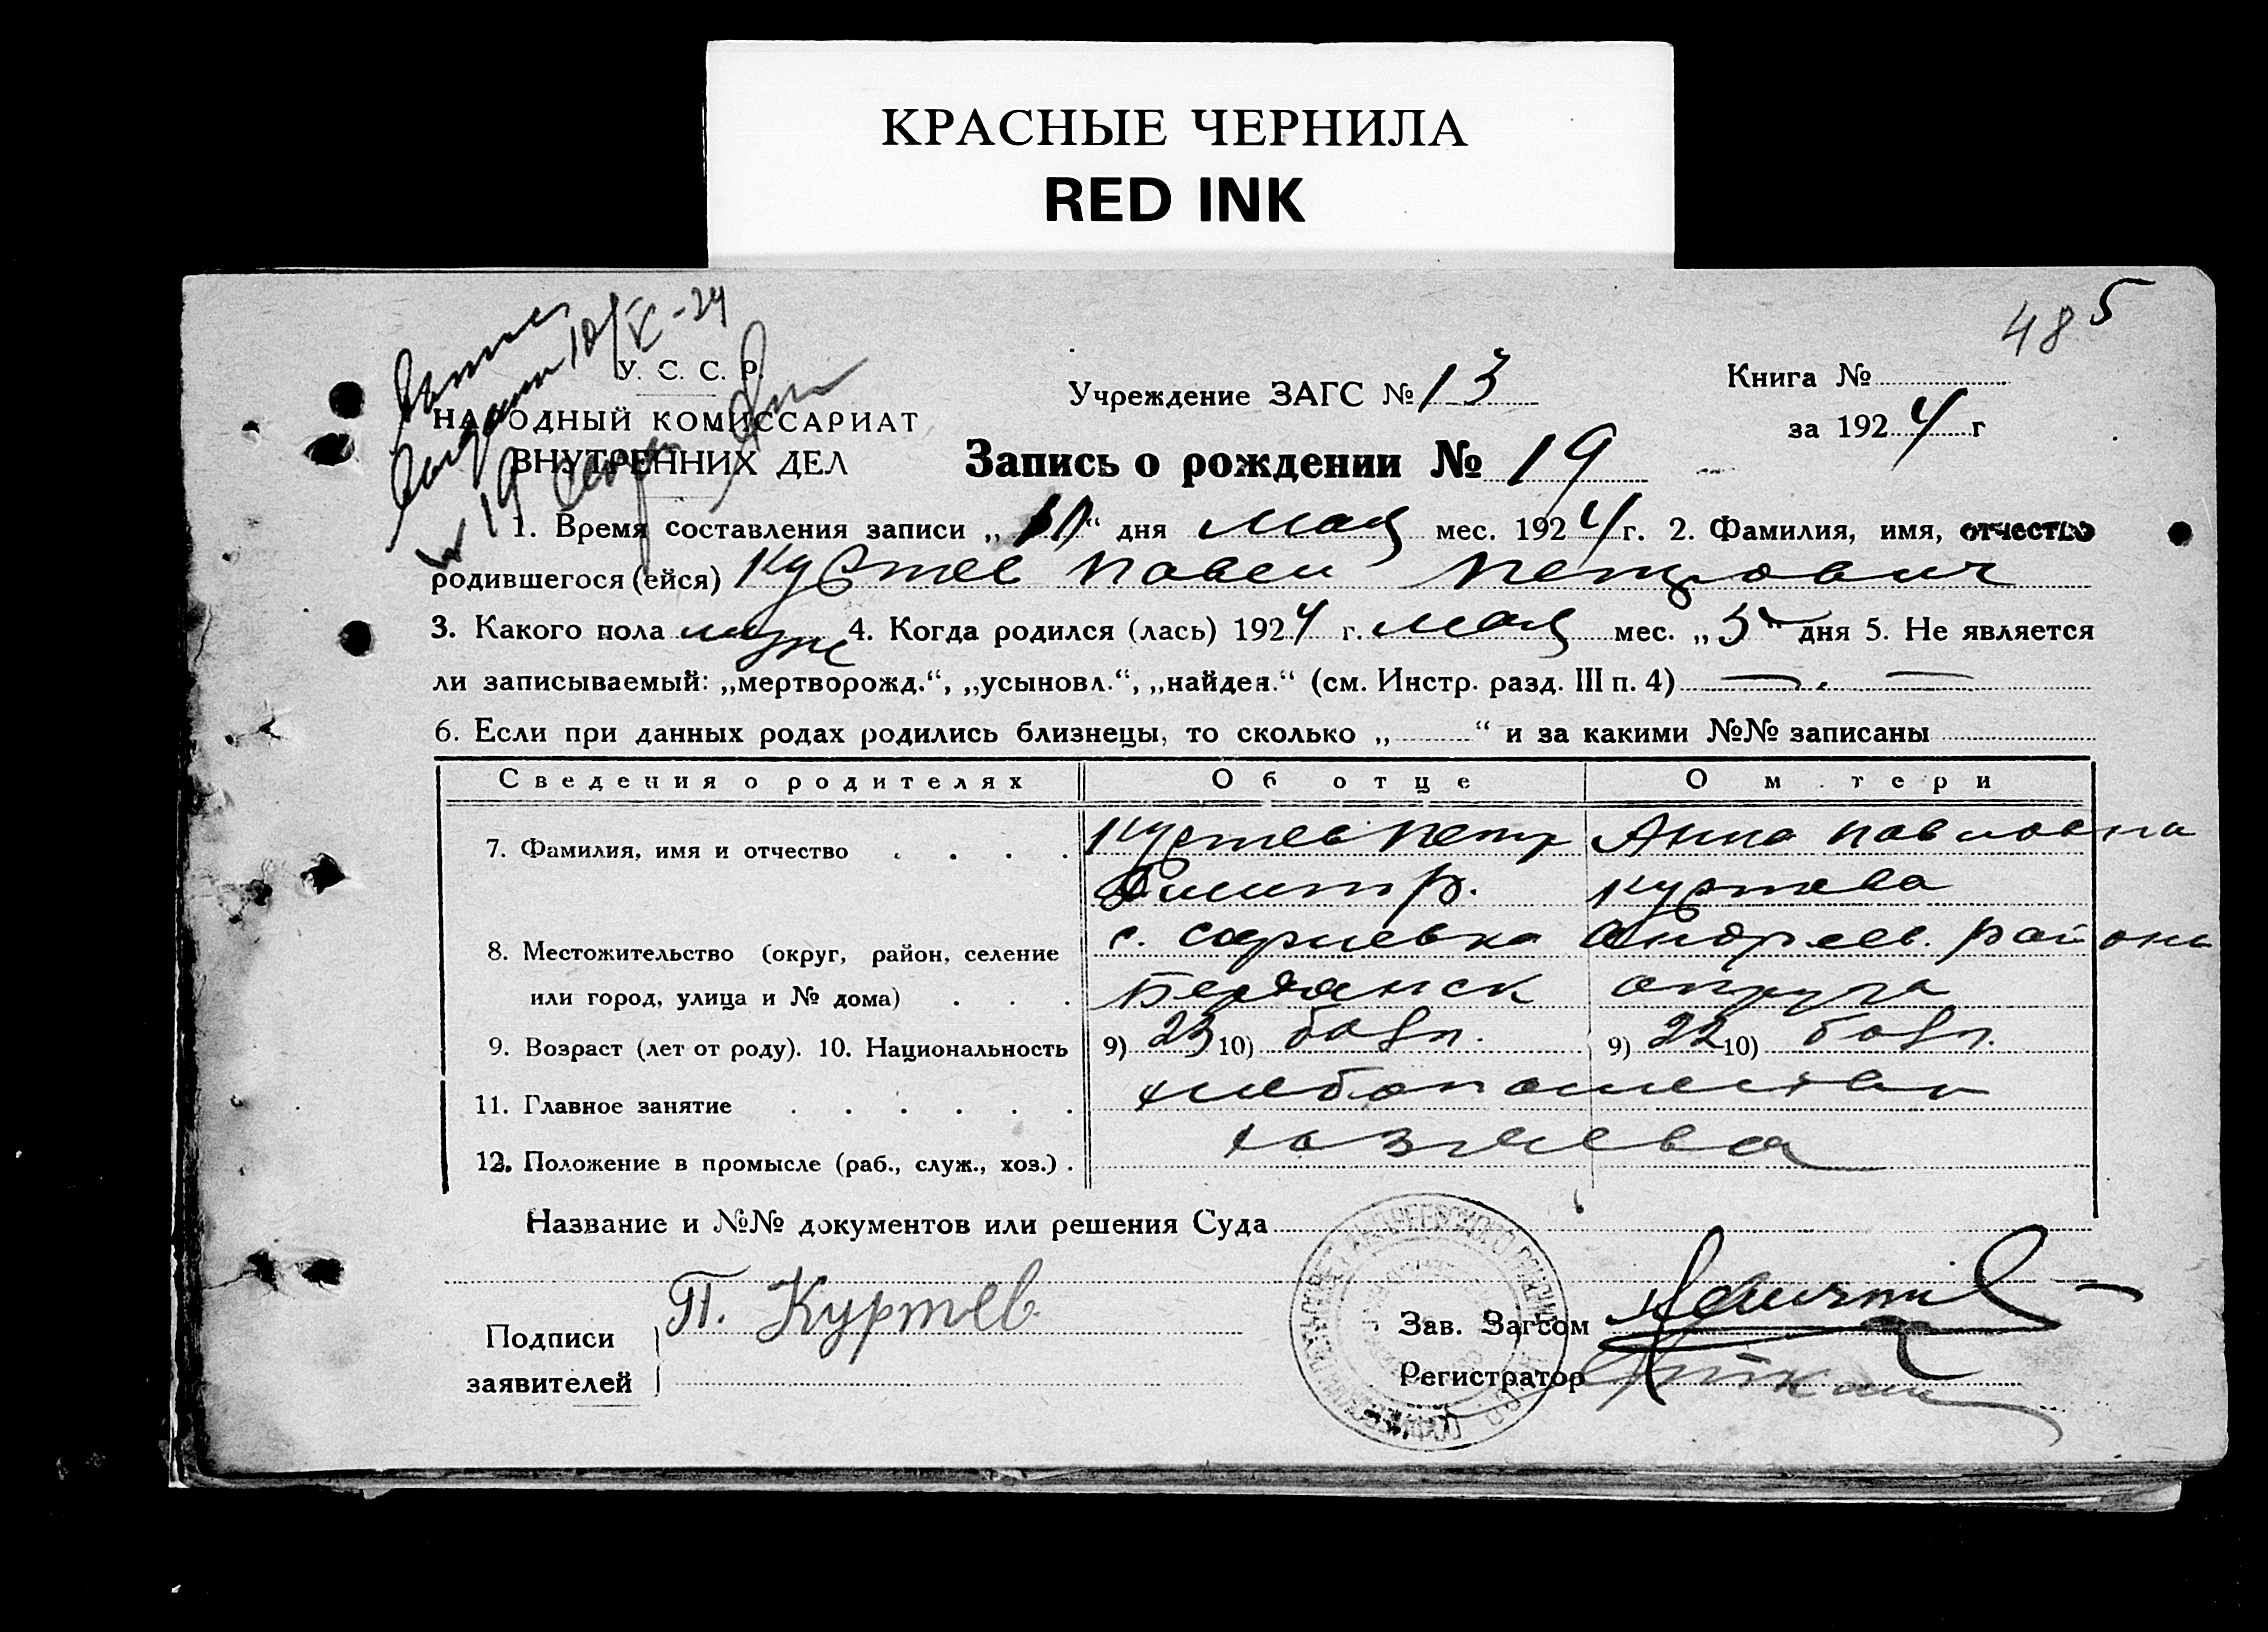 КРАСНЫЕ ЧЕРНИЛА
RED INK
48 5
У. С. С. Р.
НАРОДНЫЙ КОМИССАРИАТ
ВНУТРЕННИХ ДЕЛ
Учреждение ЗАГС № 13
Книга №
за 1924 г
Запись о рождении № 19
1. Время составления записи „10“ дня мая мес. 1924 г. 2. Фамилия, имя, отчество
родившегося (ейся) Куртев Павел Петрович
3. Какого пола муж 4. Когда родился (лась) 1924 г. мая мес. „5“ дня 5. Не является
ли записываемый: „мертворожд.“, „усыновл.“, „найден.“ (см. Инстр. разд. III п. 4) — . —
6. Если при данных родах родились близнецы, то сколько „ “ и за какими №№ записаны
Сведения о родителях Об отце О м тери
7. Фамилия, имя и отчество . . . . Куртев Петр Анна Павловна
Дмитр. Куртева
8. Местожительство (округ, район, селение с. Софиевка Андреев. района
или город, улица и № дома) . . . Бердянск округа
9. Возраст (лет от роду). 10. Национальность 9) 23 10) болг. 9) 22 10) болг.
11. Главное занятие . . . . . . хлебопашество
12. Положение в промысле (раб., служ., хоз.) . хозяева
Название и №№ документов или решения Суда
Подписи заявителей П. Куртев
Зав. Загсом
Регистратор